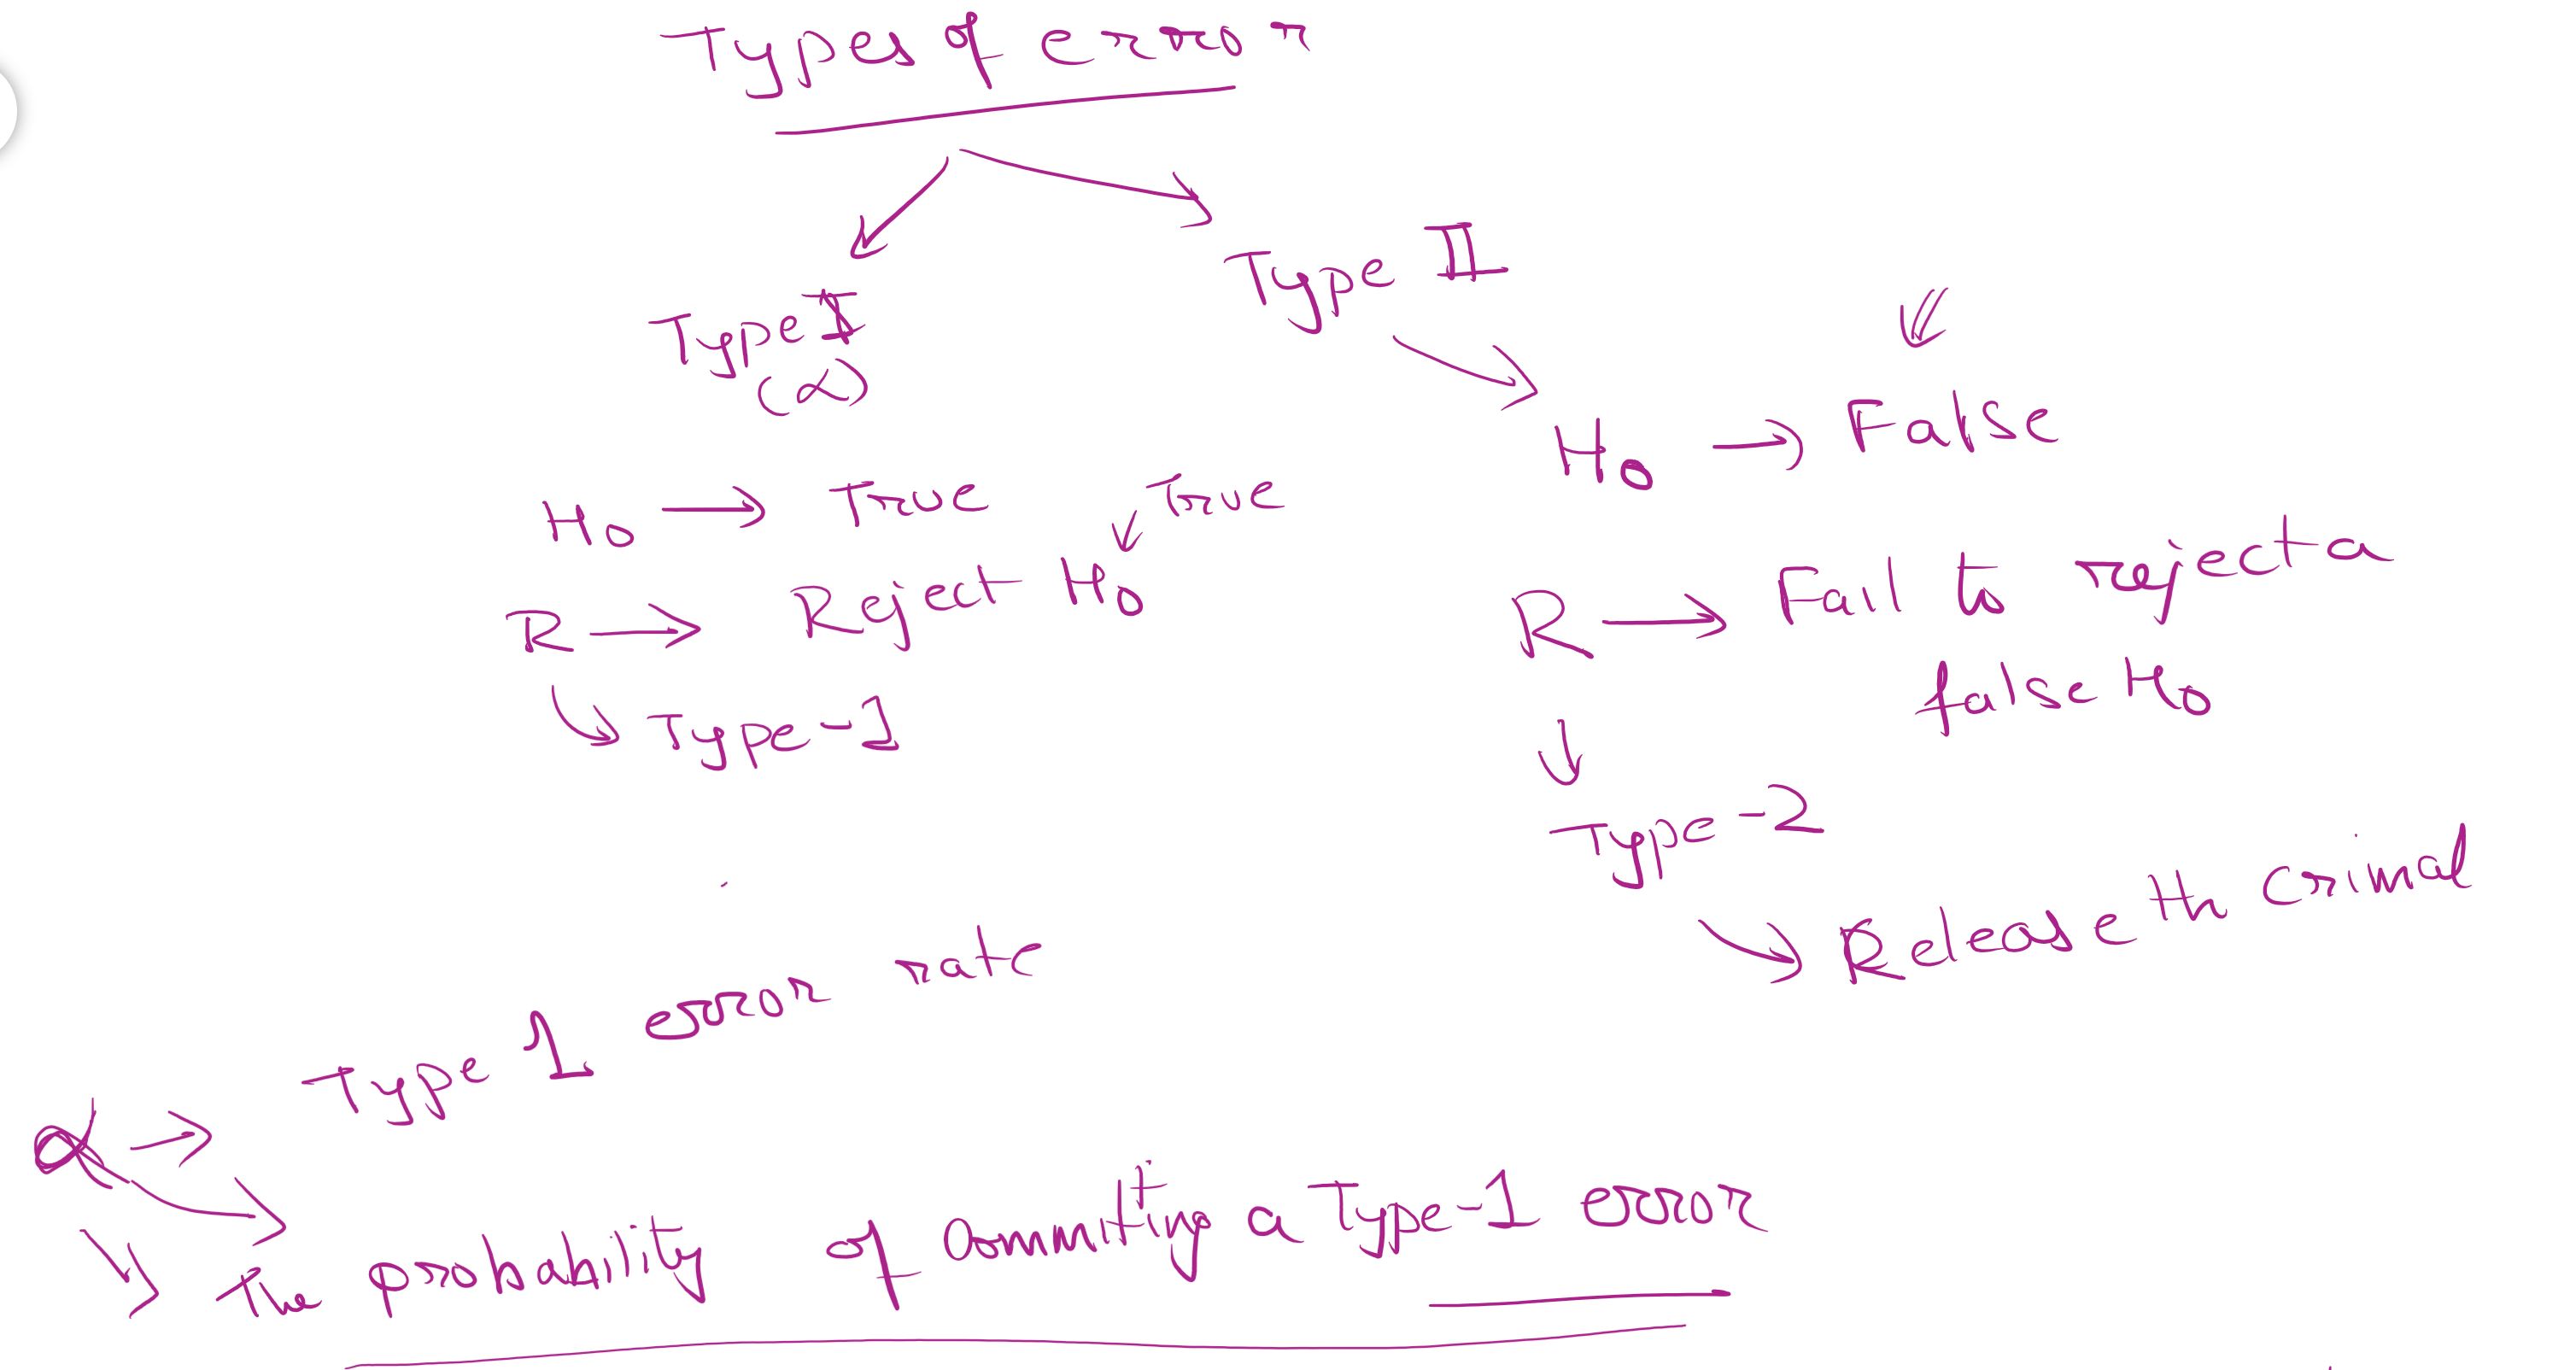 Types of error
Type I
(α)
H0 → True
True
R → Reject H0
Type-1
Type II
H0 → False
R → Fail to reject a
false H0
Type-2
Release th crimal
α → Type 1 error rate
The probability of committing a Type-1 error